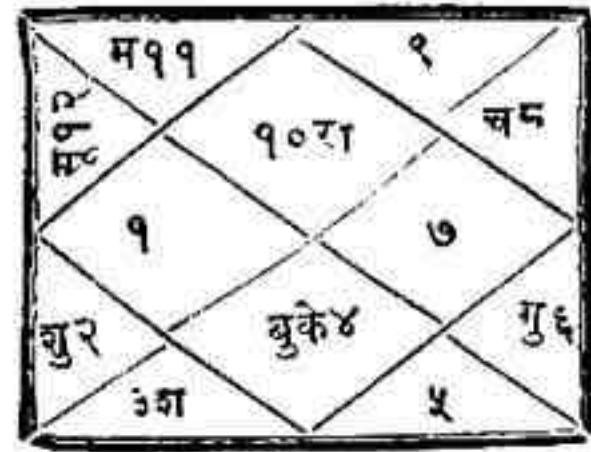 म११
९
म१२
च८
१०रा
१
७
शु२
बुके४
गु६
३श
५